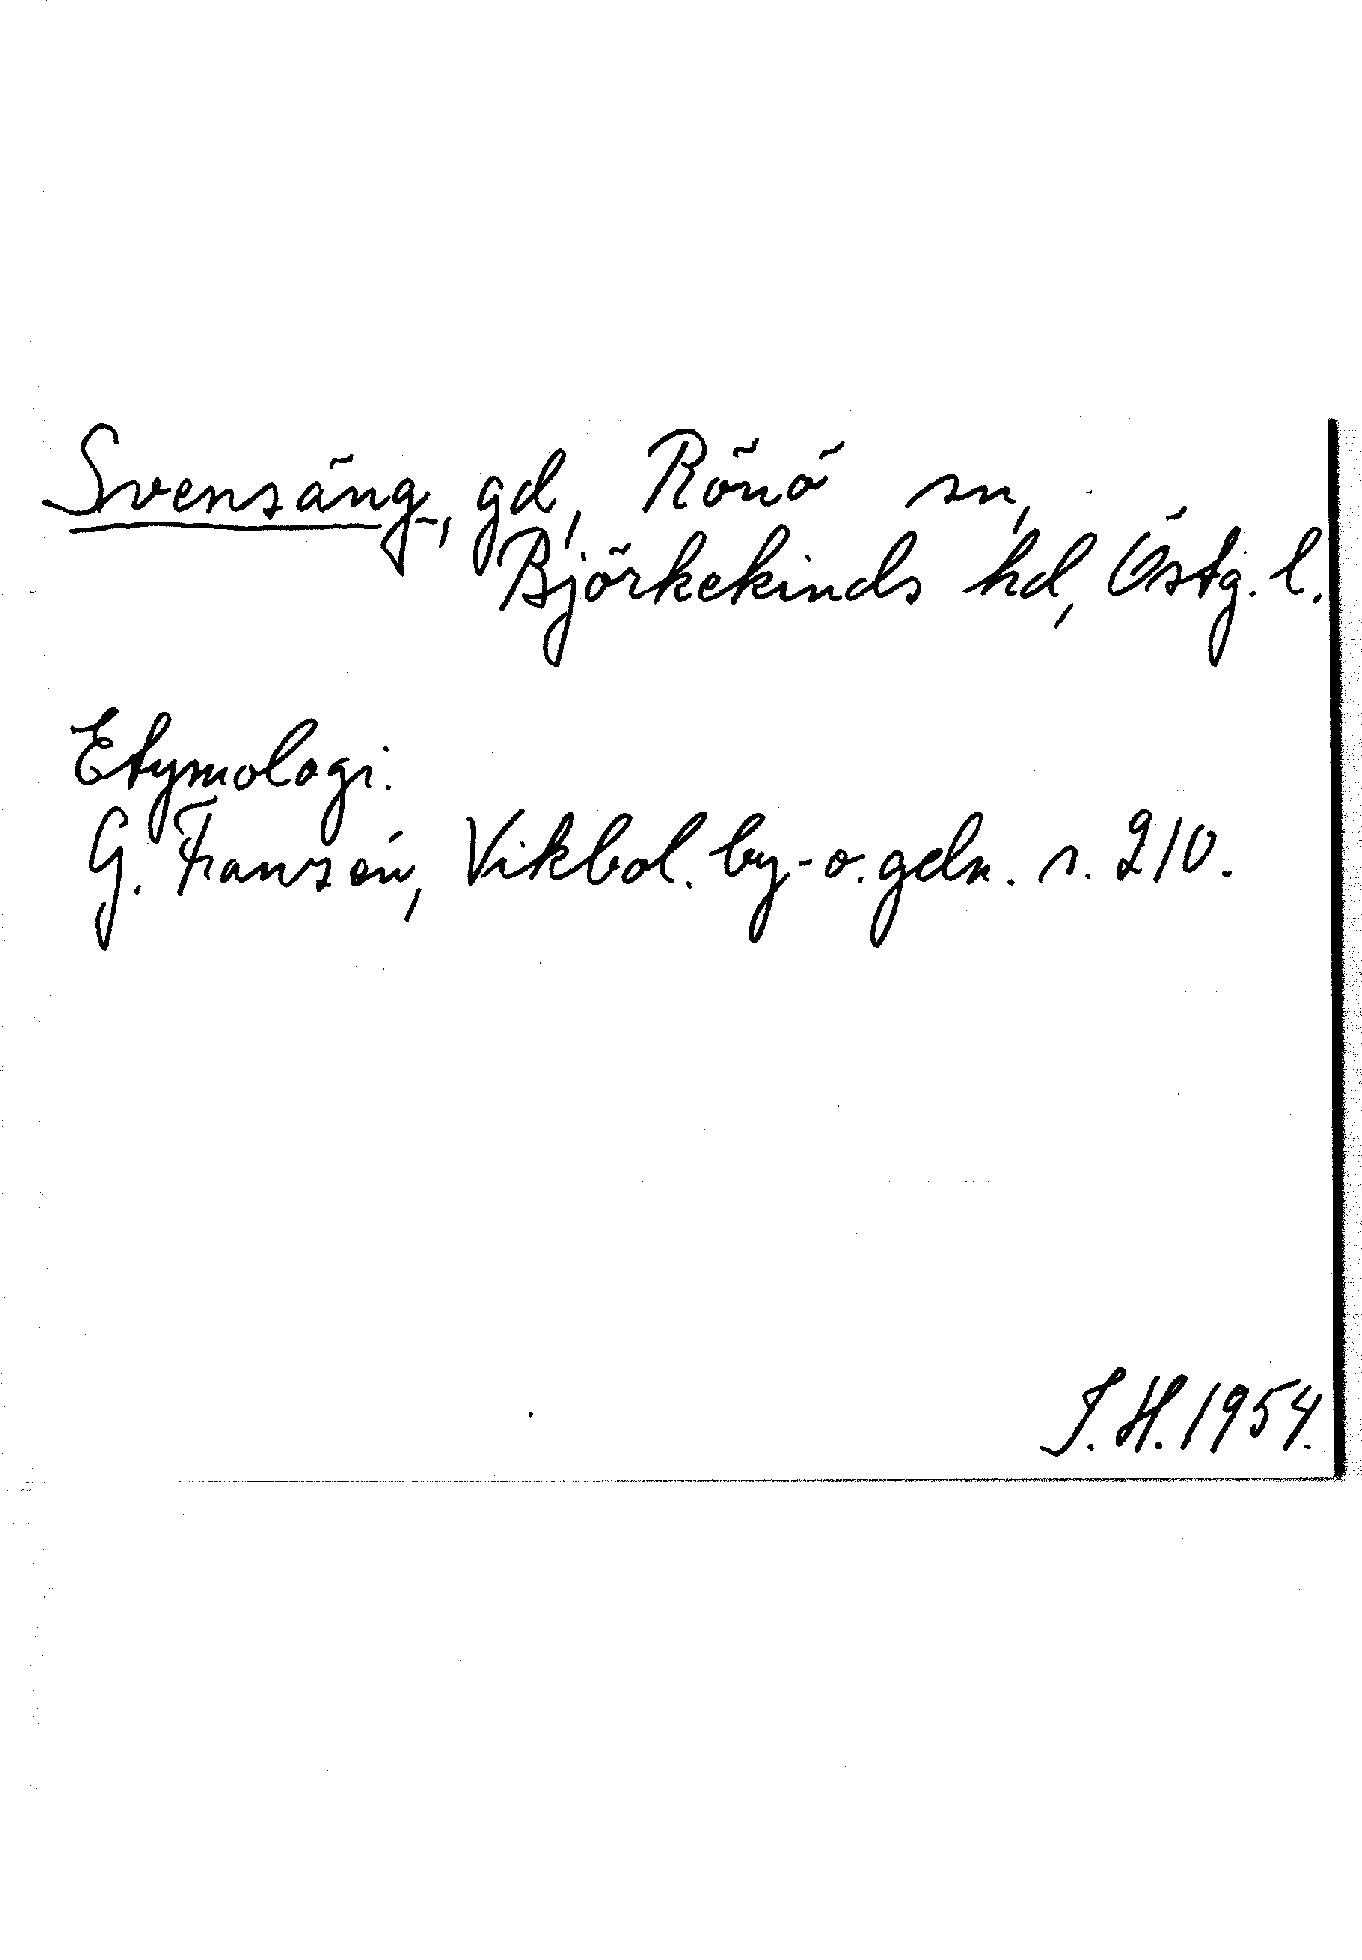 Svensäng, gd, Rönö sn,
Björkekinds hd, Östg. l.
Etymologi.
G. Franzén, Vikbol. by- o. gdsn. s. 210.
I. H. 1954.